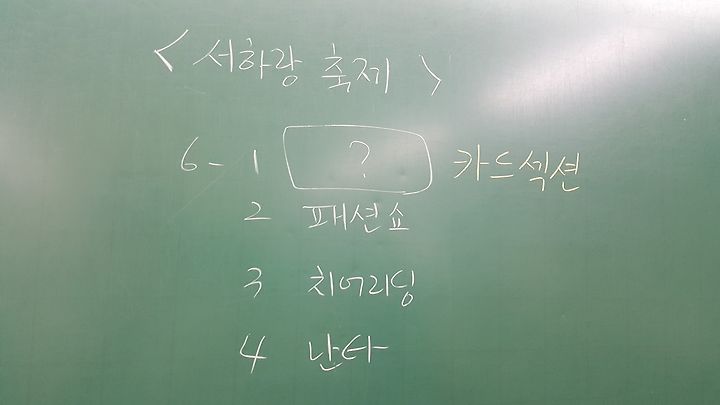 < 서하랑 축제 >
6-1 ? 카드섹션
2 패션쇼
3 치어리딩
4 난타